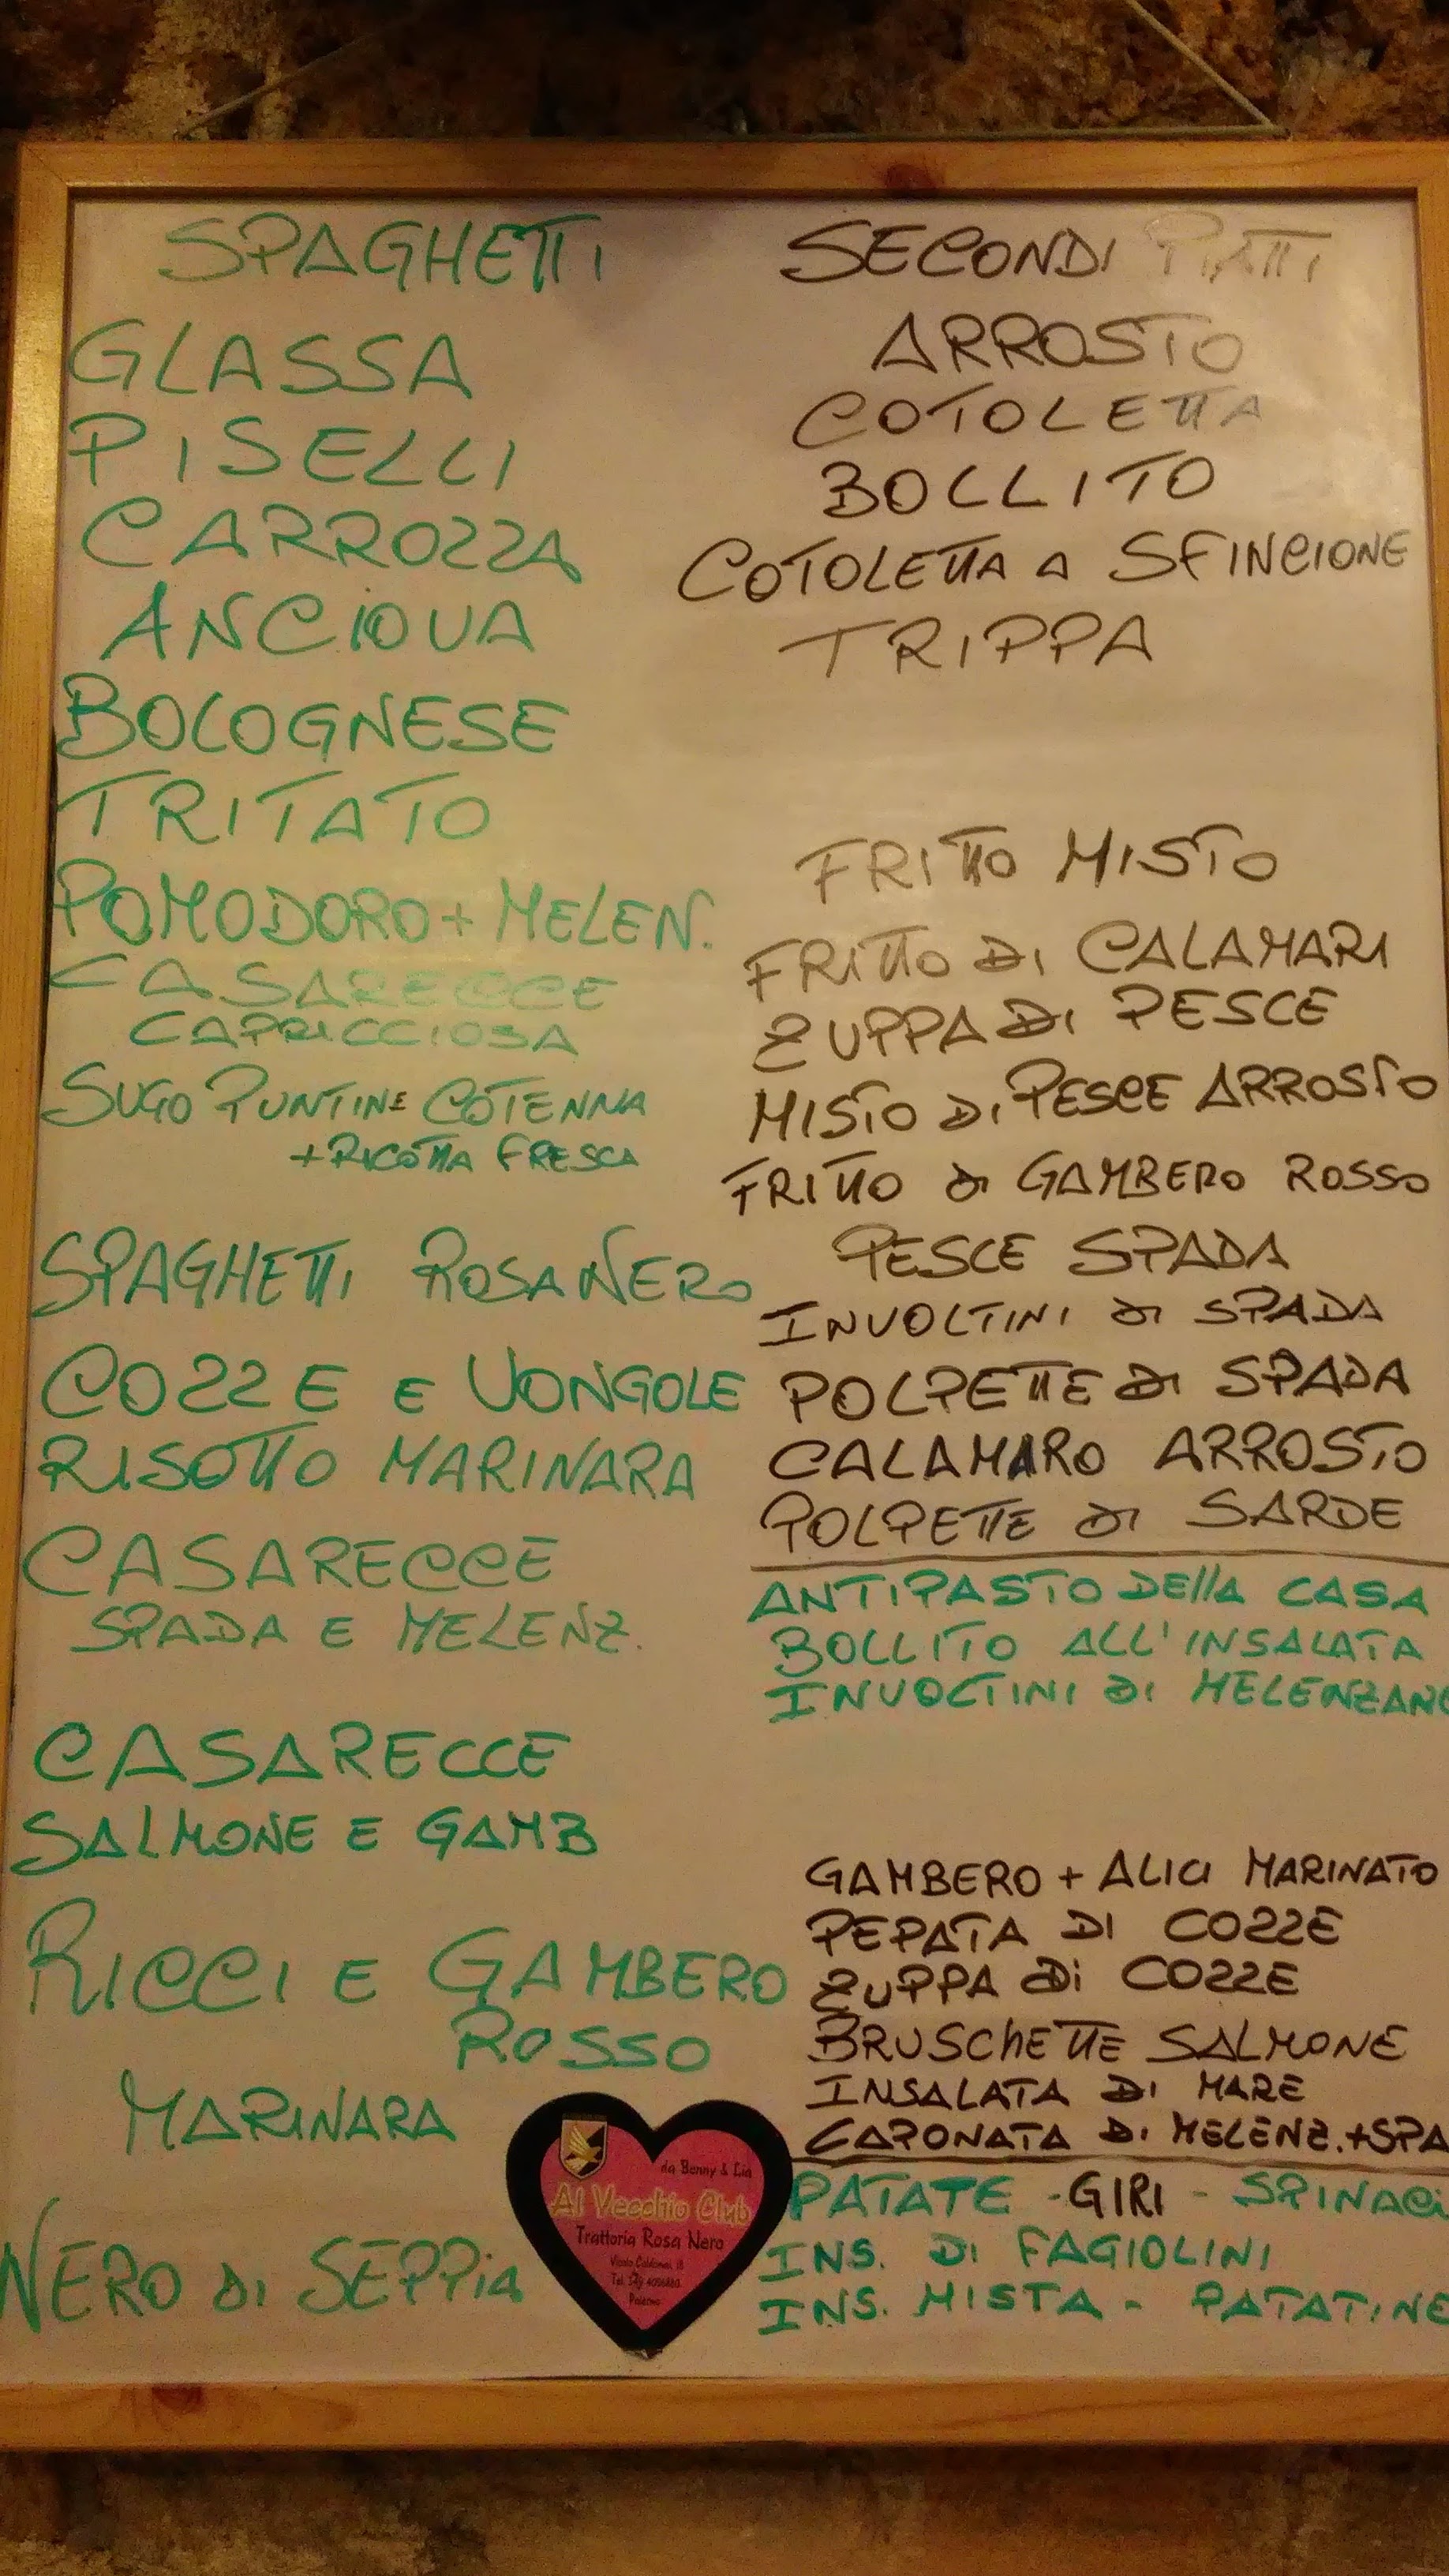 SPAGHETTI
GLASSA
PISELLI
CARROZZA
ANCIOVA
BOLOGNESE
TRITATO
POMODORO + MELEN.
CASARECCE
CAPRICCIOSA
SUGO PUNTINE COTENNA
+ RICOTTA FRESCA
SPAGHETTI ROSANERO
COZZE E VONGOLE
RISOTTO MARINARA
CASARECCE
SPADA E MELENZ.
CASARECCE
SALMONE E GAMB
RICCI E GAMBERO
ROSSO
MARINARA
NERO DI SEPPIA
SECONDI PIATTI
ARROSTO
COTOLETTA
BOLLITO
COTOLETTA A SFINCIONE
TRIPPA
FRITTO MISTO
FRITTO DI CALAMARI
ZUPPA DI PESCE
MISTO DI PESCE ARROSTO
FRITTO DI GAMBERO ROSSO
PESCE SPADA
INVOLTINI DI SPADA
POLPETTE DI SPADA
CALAMARO ARROSTO
POLPETTE DI SARDE
ANTIPASTO DELLA CASA
BOLLITO ALL'INSALATA
INVOLTINI DI MELENZANE
GAMBERO + ALICI MARINATO
PEPATA DI COZZE
ZUPPA Di COZZE
BRUSCHETTE SALMONE
INSALATA DI MARE
CAPONATA DI MELENZ. + SPA
PATATE - GIRI - SPINACi
INS. DI FAGIOLINI
INS. MISTA - PATATINE
da Benny & Lia
Al Vecchio Club
Trattoria Rosa Nero
Palermo